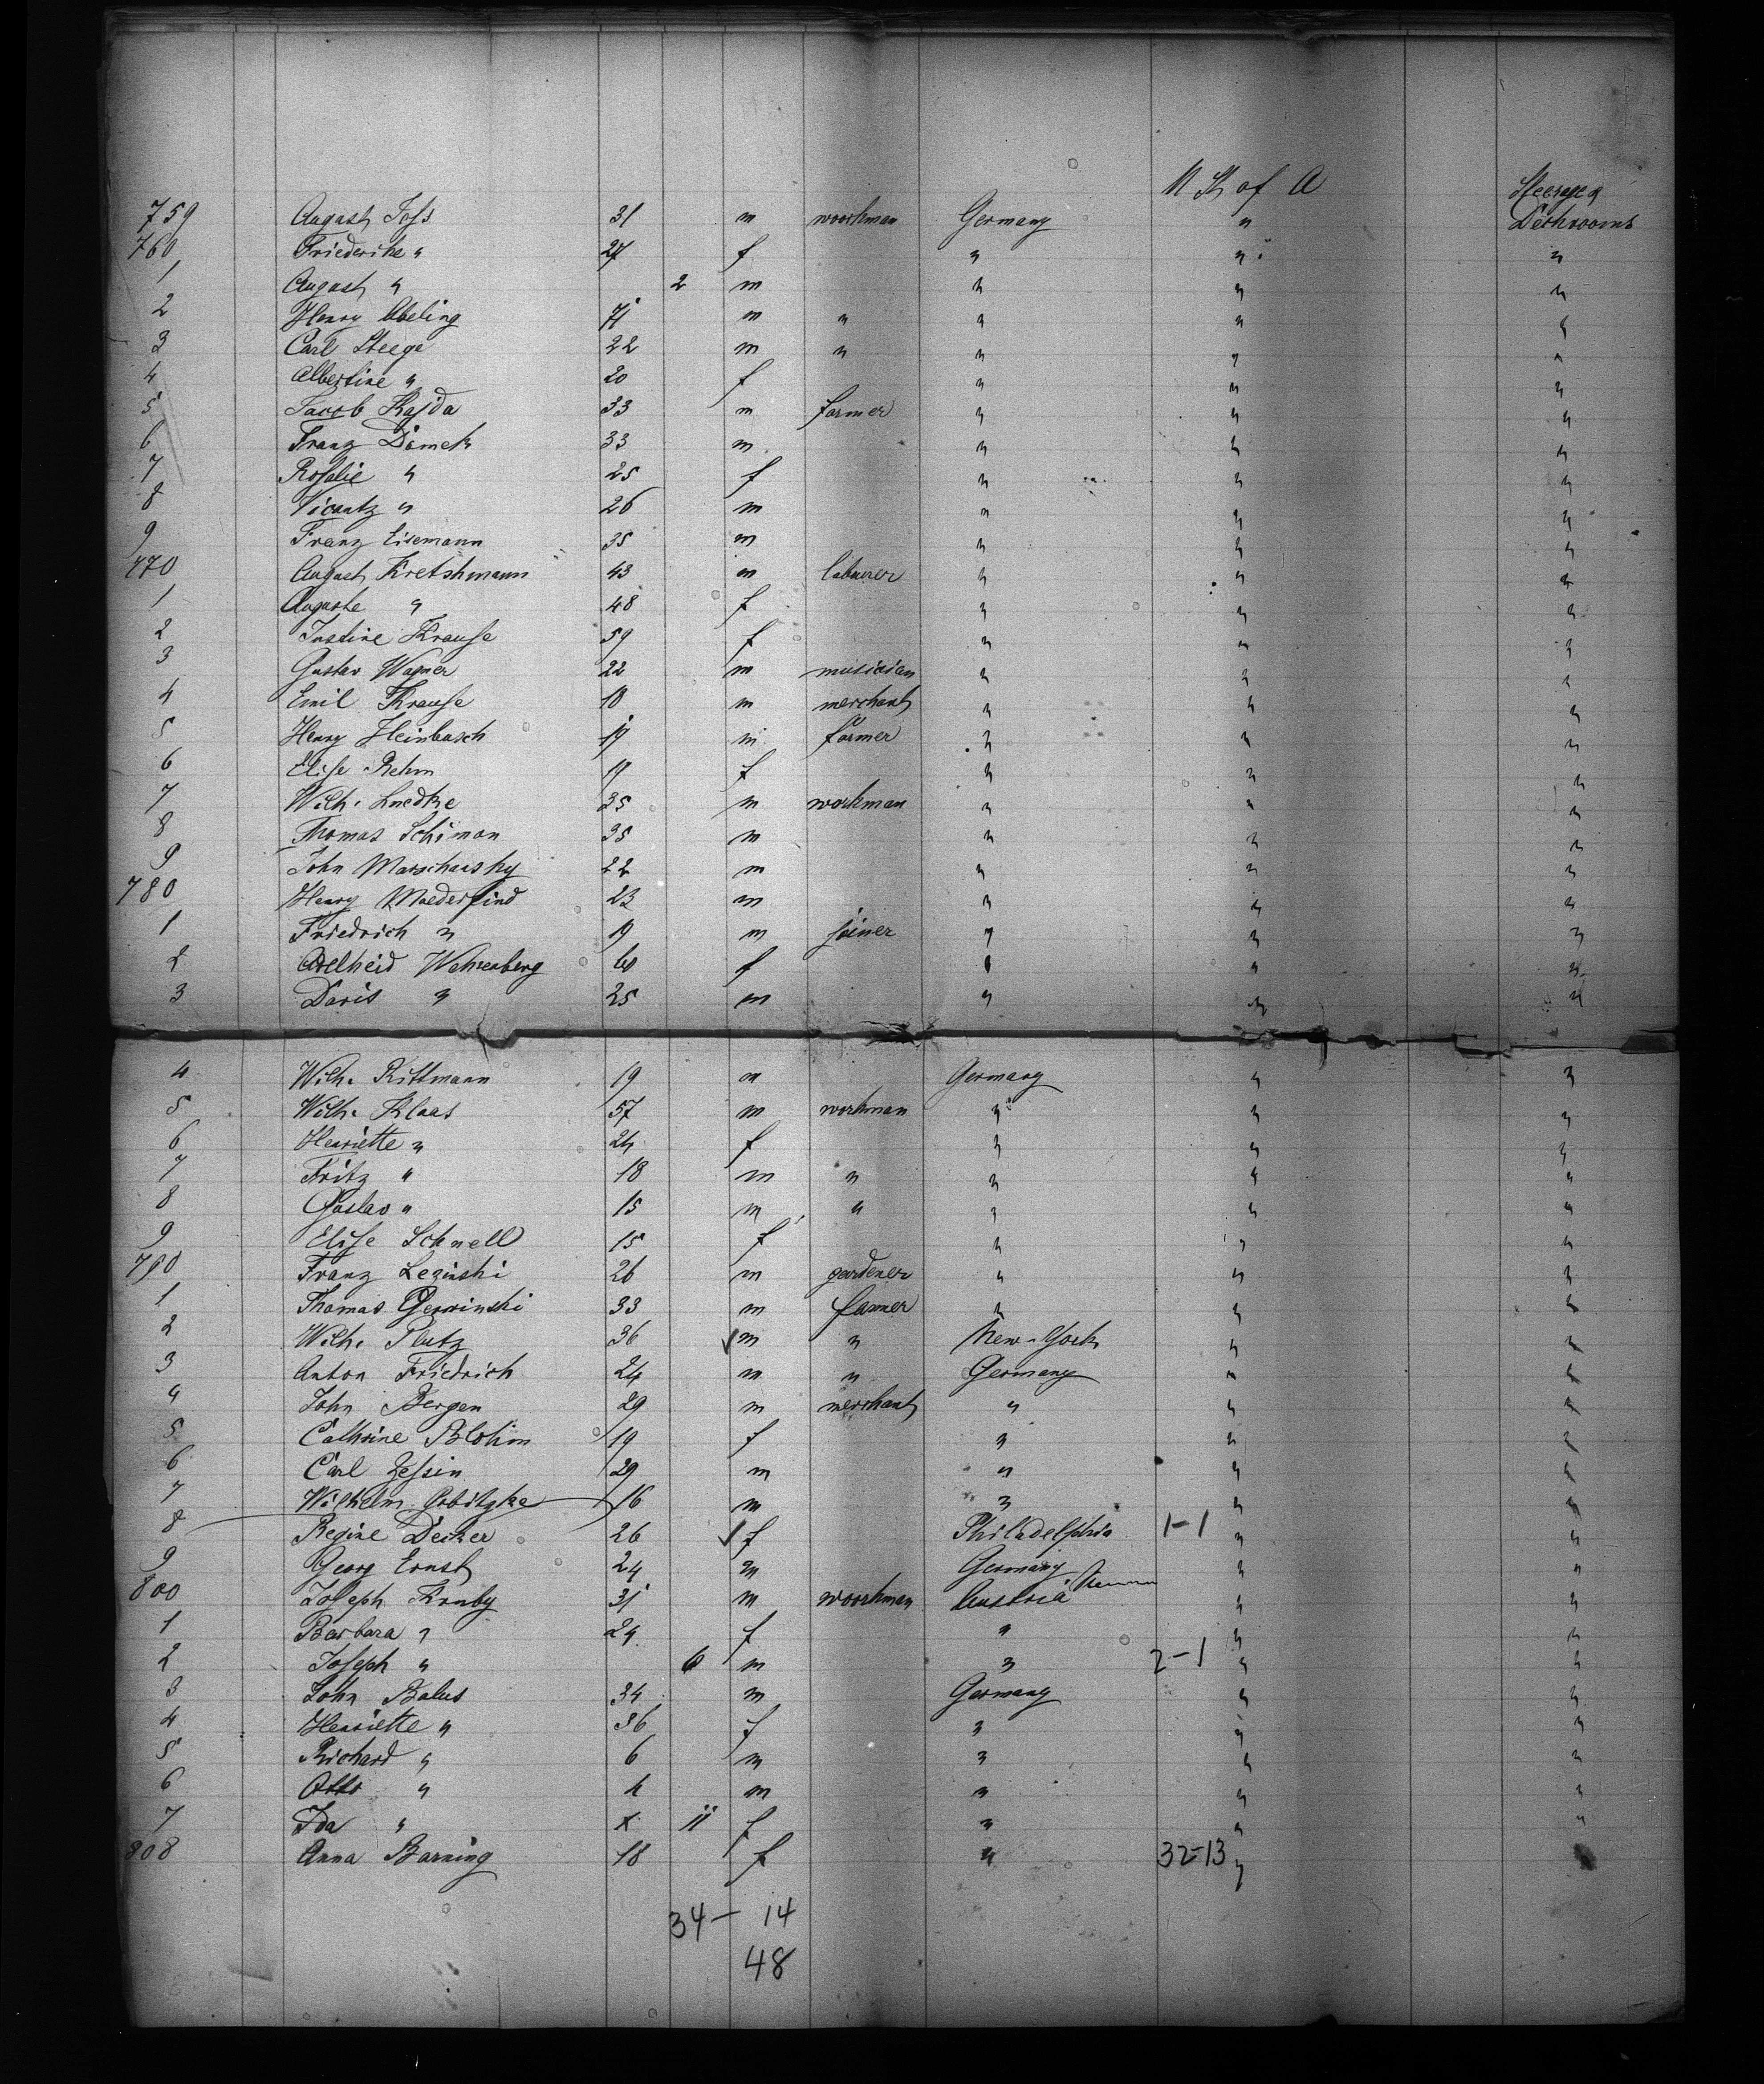 U St of A Steerage
759 August Joss 31 m woorkman Germany " Deckrooms
760 Friederike " 27 f " " "
1 August " 2 m " " "
2 Henry Ebeling 71 m " " " "
3 Carl Steege 22 m " " " "
4 Albertine " 20 f " " "
5 Jacob Kajda 33 m farmer " " "
6 Franz Domek 33 m " " "
7 Rosalie " 25 f " " "
8 Vicentz " 26 m " " "
9 Franz Eisemann 35 m " " "
770 August Kretshmann 43 m labourer " " "
1 Auguste " 48 f " " "
2 Justine Krause 59 f " " "
3 Gustav Wagner 22 m musician " " "
4 Emil Krause 18 m merchant " " "
5 Henry Heinbusch 17 m farmer " " "
6 Elise Rehm 19 f " " "
7 Wilh. Luedtke 35 m workman " " "
8 Thomas Schimon 35 m " " "
9 John Marschausky 22 m " " "
780 Henry Moederfind 23 m " " "
1 Friedrich " 19 m joiner " " "
2 Adelheid Wehrenberg 60 f " " "
3 Doris " 25 m " " "
4 Wilh. Rittmann 19 m Germany " "
5 Wilh. Klaas 57 m workman " " "
6 Henriette " 24 f " " "
7 Fritz " 18 m " " " "
8 Gustav " 15 m " " " "
9 Elise Schnell 15 f " " "
790 Franz Leginski 26 m gardener " " "
1 Thomas Gerwinski 33 m farmer " " "
2 Wilh. Plutz 36 m " New-York " "
3 Anton Friedrich 24 m " Germany " "
4 John Bergen 29 m merchant " " "
5 Cathrine Blohm 19 f " " "
6 Carl Zessin 29 m " " "
7 Wilhelm Gobitzke 16 m " " "
8 Regine Decker 26 f Philadelphia 1-1 " "
9 Georg Ernst 24 m Germany " "
800 Joseph Kruby 31 m woorkman Austria " "
1 Barbara " 24 f " " "
2 Joseph " 6 m " 2-1 " "
3 John Balus 34 m Germany " "
4 Henriette " 36 f " " "
5 Richard " 6 m " " "
6 Otto " 4 m " " "
7 Ida " x 11 f " " "
808 Anna Barning 18 f " 32-13 "
34 - 14
48